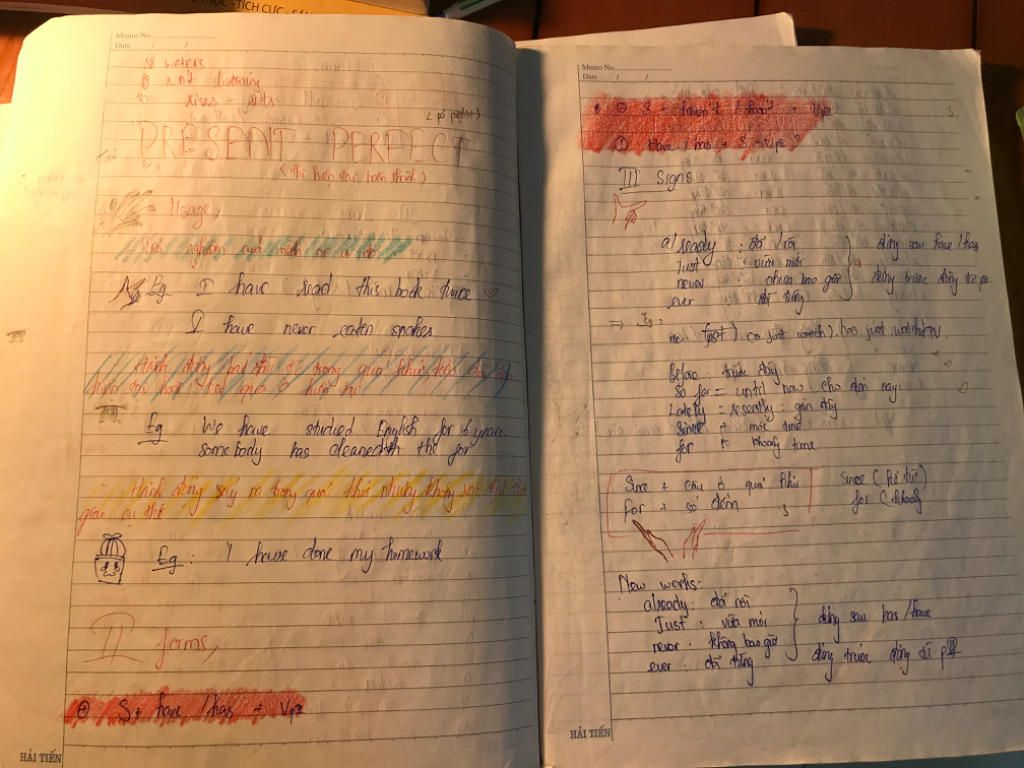 THỨC - TÍCH CỰC - SÁ
Memo No.
Date / /
listening
PRESENT PERFECT
(thì hiện tại hoàn thành)
Usage,
Eg I have read this book twice
I have never eaten snakes
Hành động bắt đầu từ trong quá khứ, kéo dài đến
hiện tại hoặc kết quả ở hiện tại
Eg We have studied English for 6 years.
somebody has cleaned the for
- Hành động xảy ra trong quá khứ nhưng không xác định thời
gian cụ thể
Eg: I have done my homework
II forms,
⊕ S + have / has + Vp2
HẢI TIẾN
Memo No.
Date / /
S + haven't / hasn't + Vp2
Have / has + S + Vp2 ?
III Signs
already : đã rồi
Just : vừa mới
never : chưa bao giờ
ever : đã từng
đứng sau have / has
đứng trước động từ p2
⇒ Eg:
(just) has just watched TV.
Before : trước đây
So far = until now : cho đến nay
Lately = resently : gần đây
Since + mốc time
for + khoảng time
Since + câu ở quá khứ
for + số đếm
Since (kể từ)
for (khoảng
New works:
already: đã rồi
Just : vừa mới
never : không bao giờ
ever : đã từng
đứng sau has / have
đứng trước động từ pII
HẢI TIẾN